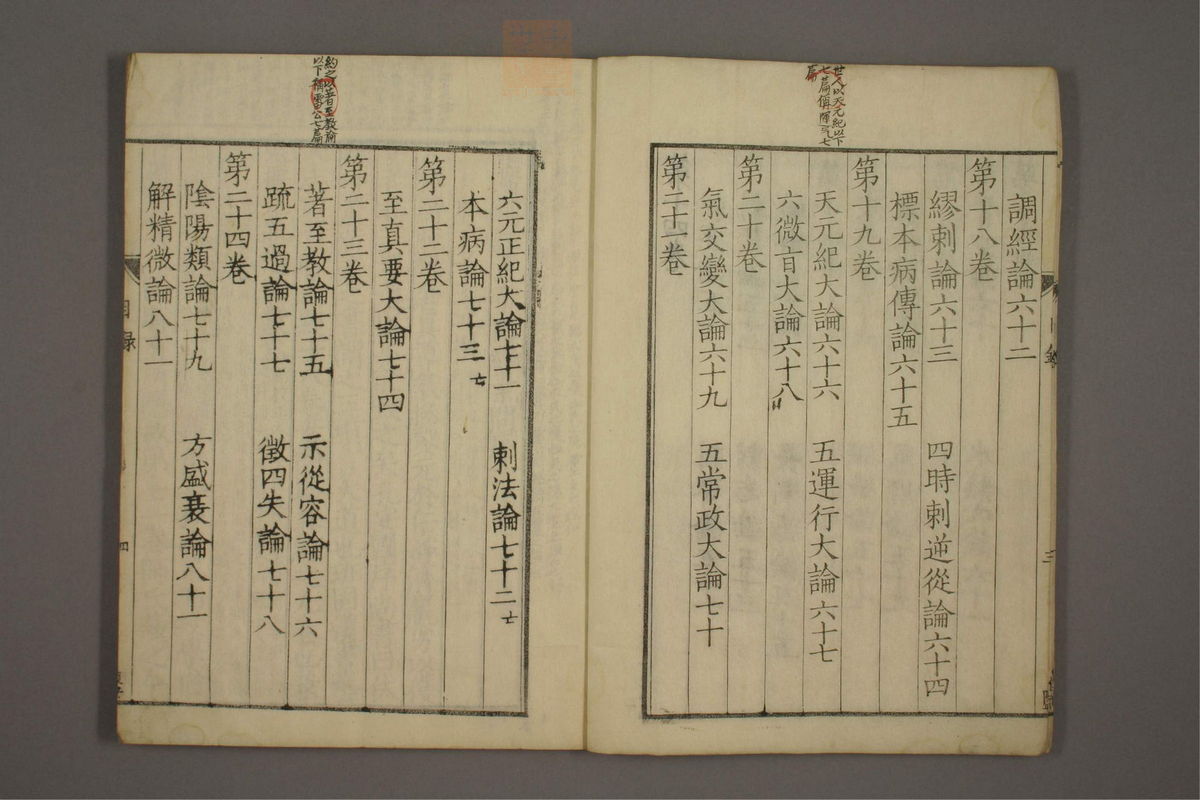 世人以天元紀以下
七篇偁運气七
篇
調經論六十二
第十八卷
繆刺論六十三　四時刺逆從論六十四
標本病傳論六十五
第十九卷
天元紀大論六十六　五運行大論六十七
六微旨大論六十八
第二十卷
氣交變大論六十九　五常政大論七十
第二十一卷
三
約之以著至教論
以下稱雷公七篇
六元正紀大論七十一　刺法論七十二亡
本病論七十三亡
第二十二卷
至真要大論七十四
第二十三卷
著至教論七十五　示從容論七十六
疏五過論七十七　徵四失論七十八
第二十四卷
陰陽類論七十九　方盛衰論八十一
解精微論八十一
目錄
四